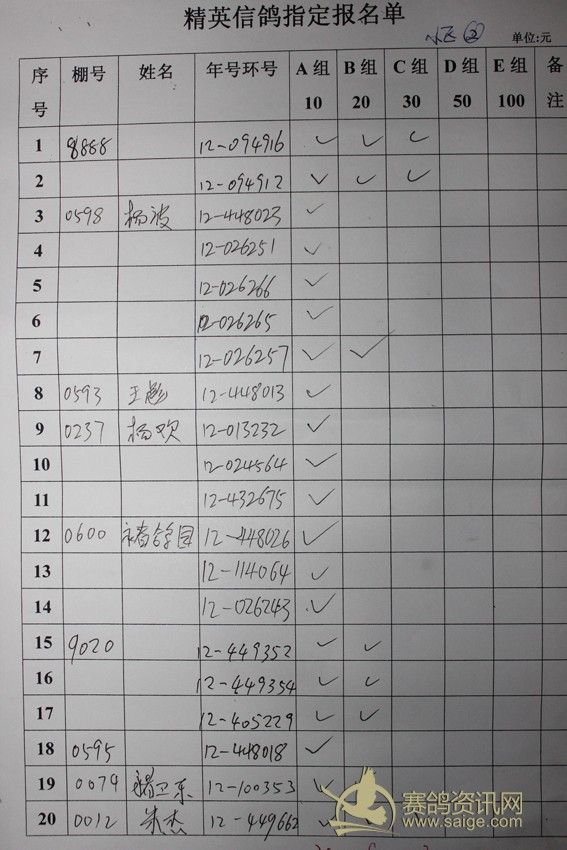 精英信鸽指定报名单
② 单位:元
序号 棚号 姓名 年号环号 A组10 B组20 C组30 D组50 E组100 备注
1 8888 12-094916 ✓ ✓ ✓
2 12-094912 ✓ ✓ ✓
3 0598 杨波 12-448023 ✓
4 12-026251 ✓
5 12-026266 ✓
6 12-026265 ✓
7 12-026257 ✓ ✓
8 0593 王彪 12-448013 ✓
9 0237 杨欢 12-013232 ✓
10 12-024564 ✓
11 12-432675 ✓
12 0600 12-448026 ✓
13 12-114064 ✓
14 12-026243 ✓
15 9020 12-449352 ✓ ✓
16 12-449354 ✓ ✓
17 12-405229 ✓ ✓
18 0595 12-448018 ✓
19 0079 12-100353 ✓
20 0012 朱杰 12-449662 ✓
赛鸽资讯网
www.saige.com